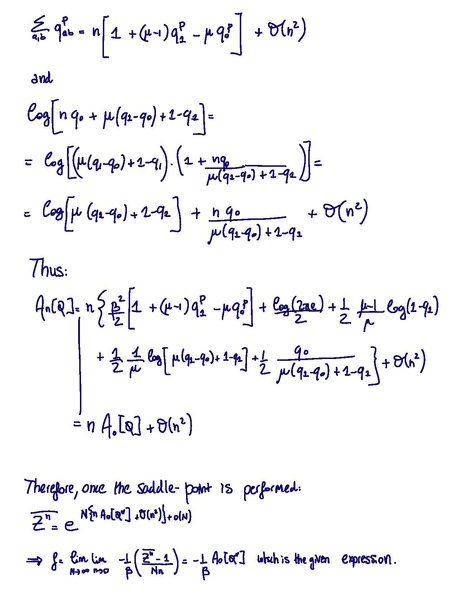 ∑_{a,b} q_{ab}^p = n[1 + (μ-1)q_1^p - μ q_0^p] + O(n²)
and
log[n q_0 + μ(q_1-q_0) + 1-q_1] =
= log[(μ(q_1-q_0)+1-q_1) · (1 + \frac{nq_0}{μ(q_1-q_0)+1-q_1})] =
= log[μ(q_1-q_0) + 1-q_1] + \frac{n q_0}{μ(q_1-q_0)+1-q_1} + O(n²)
Thus:
A_n[Q] = n{\frac{β²}{2}[1 + (μ-1)q_1^p - μq_0^p] + \frac{log(2πe)}{2} + \frac{1}{2} \frac{μ-1}{μ} log(1-q_1)
+ \frac{1}{2} \frac{1}{μ} log[μ(q_1-q_0)+1-q_1] + \frac{1}{2} \frac{q_0}{μ(q_1-q_0)+1-q_1}} + O(n²)
= n A_0[Q] + O(n²)
Therefore, once the saddle-point is performed:
\overline{Z^n} = e^{N{n A_0[Q^*] + O(n²)} + o(N)}
⇒ f = lim_{N→∞} lim_{n→0} -\frac{1}{β}(\frac{\overline{Z^n}-1}{Nn}) = -\frac{1}{β} A_0[Q^*] which is the given expression.